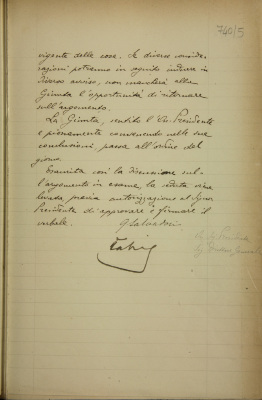 740/5
vigente delle cose. Se diverse conside-
razioni potranno in seguito indurre in
diverso avviso, non mancherà alla
Giunta l'opportunità di ritornare
sull'argomento.
La Giunta, sentito il Presidente
e pienamente convenendo nelle sue
conclusioni, passa all'ordine del
giorno.
Esaurita così la discussione sul-
l'argomento in esame, la seduta viene
levata, previa autorizzazione al Signor
Presidente di approvare e firmare il
verbale.